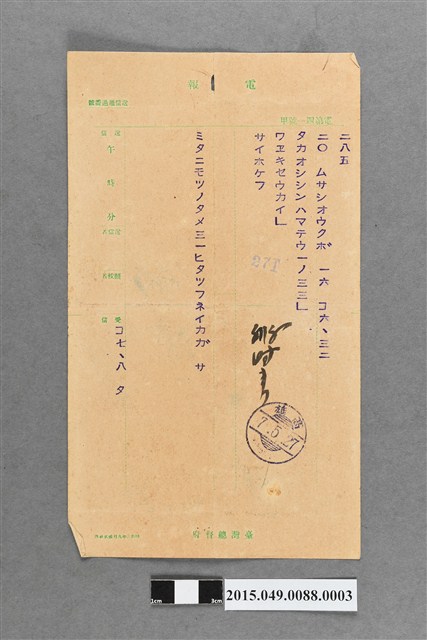 電報
二八五
二〇 ムサシオウクボ 一六 コ六、三二
タカオシシンハマテウ一ノ三三」
ワエキセウカイ」
サイホケフ
27T
ミタニモツノタメ三一ヒタツフネイカガ サ
午
時
分
コ七、八 タ
7.5.27
臺灣總督府
1cm
3cm
2015.049.0088.0003